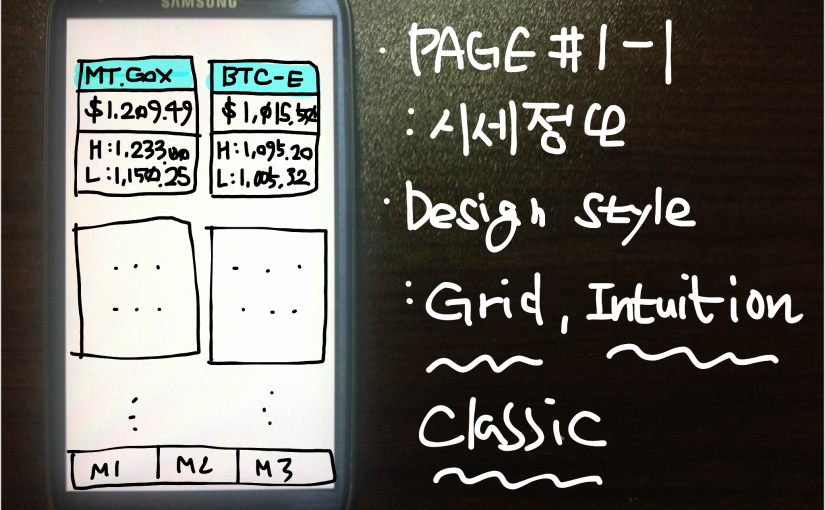 SAMSUNG
MT.Gox
$1.209.49
H:1.233.00
L:1,150.25
BTC-E
$1,015.50
H:1,095.20
L:1,005.32
...
...
...
...
M1
M2
M3
· PAGE #1-1
: 시세정보
· Design style
: Grid, Intuition
Classic